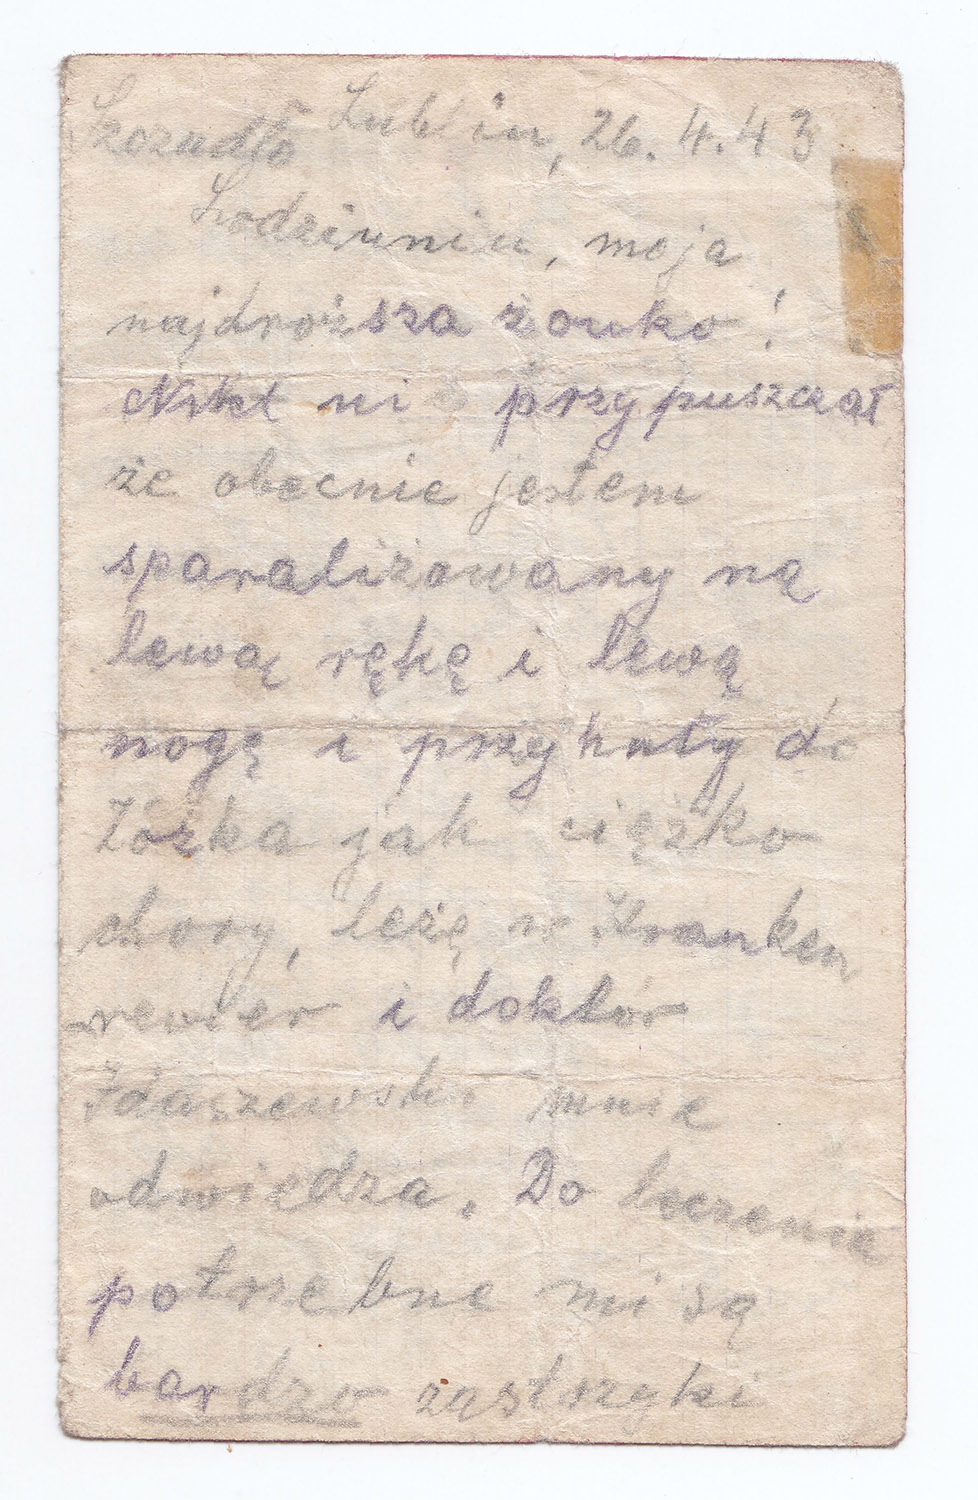 Lublin, 26.4.43
Lodziuniu, moja
najdroższa żonko!
Nikt ni przypuszczał
że obecnie jestem
sparaliżowany na
lewą rękę i lewą
nogę i przykuty do
łóżka jak ciężko
chory, leżę w Kranken
rewier i doktór
Zdaszewski mnie
odwiedza. Do leczenia
potrzebne mi są
bardzo zastrzyki